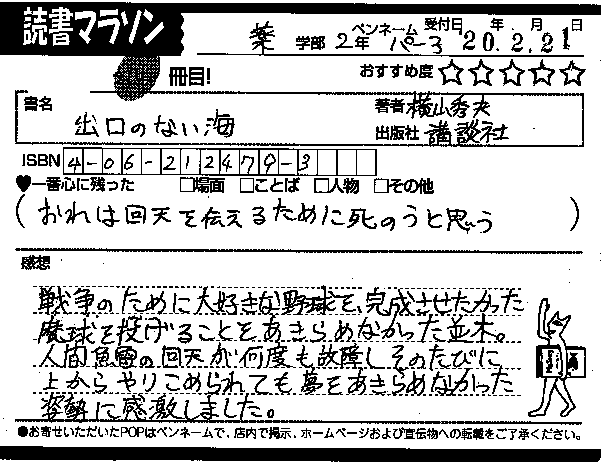 読書マラソン
薬 学部 2年 ペンネーム パー3 受付日 20年.2月.21日
冊目!
おすすめ度☆☆☆☆☆
書名 出口のない海
著者 横山秀夫
出版社 講談社
ISBN 4-06-212479-3
♥一番心に残った □場面 □ことば □人物 □その他
(おれは回天を伝えるために死のうと思う)
感想
戦争のために大好きな野球を、完成させたかった
魔球を投げることをあきらめなかった並木。
人間魚雷の回天が何度も故障しそのたびに
上からやりこめられても夢をあきらめなかった
姿勢に感激しました。
●お寄せいただいたPOPはペンネームで、店内で掲示、ホームページおよび宣伝物への転載をご了承ください。